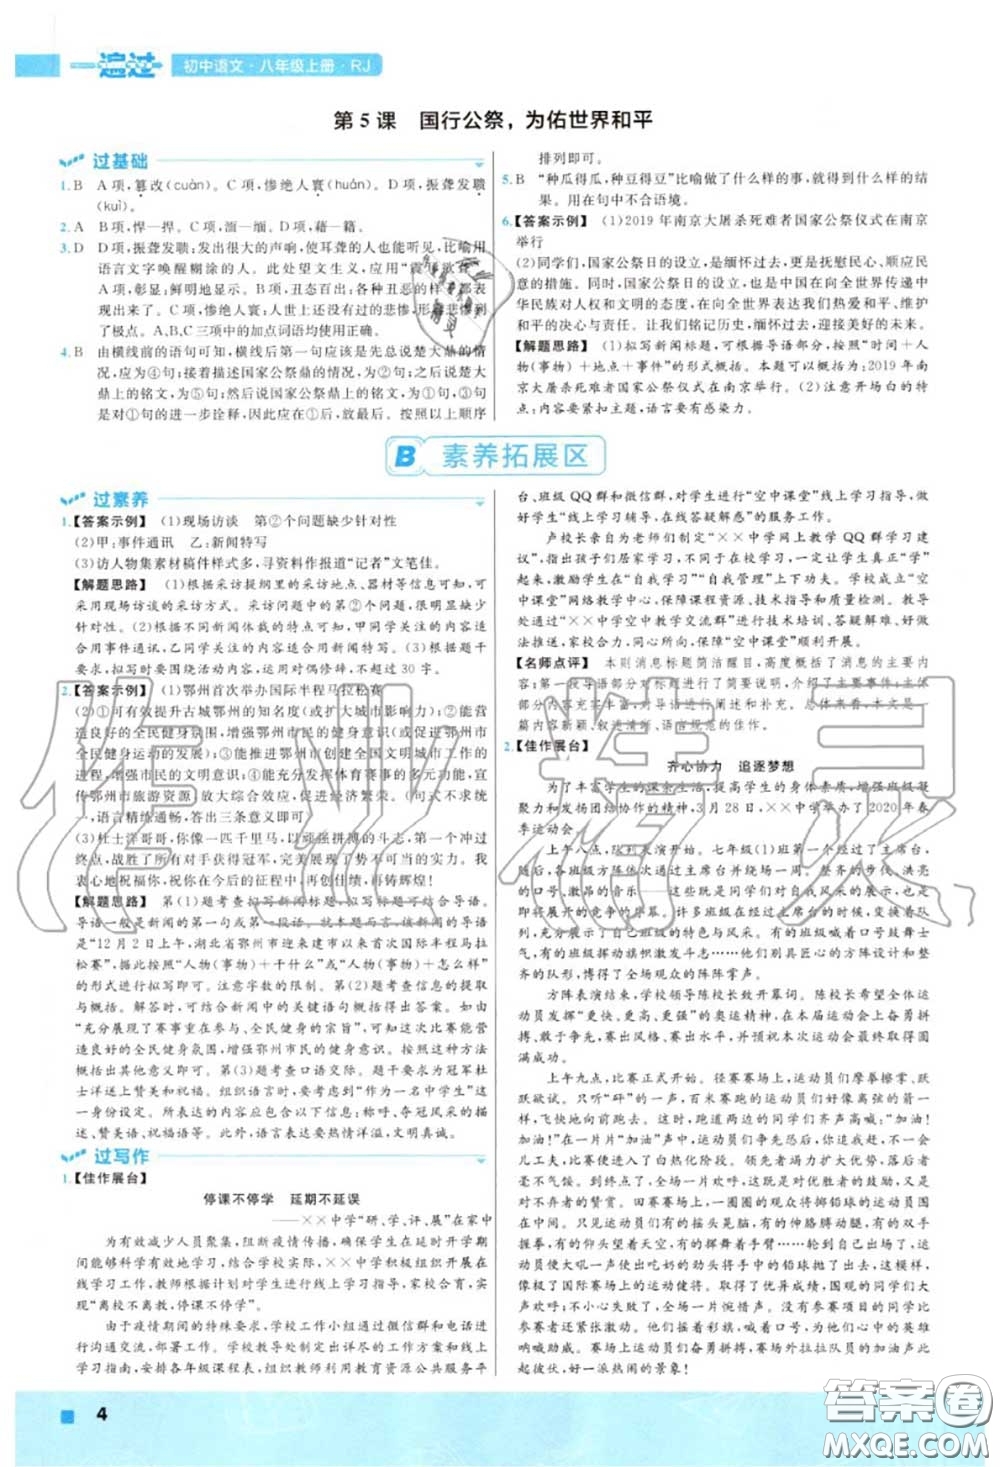 一遍过 初中语文·八年级上册·RJ
第5课 国行公祭，为佑世界和平
过基础
1.B A项，篡改(cuàn)。C项，惨绝人寰(huán)。D项，振聋发聩
(kuì)。
2.A B项，悍—捍。C项，湎—缅。D项，藉—籍。
3.D D项，振聋发聩：发出很大的声响，使耳聋的人也能听见，比喻用
语言文字唤醒糊涂的人。此处望文生义，应用
A项，彰显：鲜明地显示。B项，初衷
C项，惨绝人寰：人世上还没有过的悲惨，形容悲惨到
了极点。A、B、C三项中的加点词语均使用正确。
4.B 由横线前的语句可知，横线后第一句应该是先总说楚大鼎的情
况，应为④句；接着描述国家公祭鼎的情况，为②句；之后说楚大
鼎上的铭文，为⑤句；然后说国家公祭鼎上的铭文，为①句，③句
是对①句的进一步诠释，因此应在①后，放最后。按照以上顺序
排列即可。
5.B “种瓜得瓜，种豆得豆”比喻做了什么样的事，就得到什么样的结
果。用在句中不合语境。
6.【答案示例】(1)2019年南京大屠杀死难者国家公祭仪式在南京
举行
(2)同学们，国家公祭日的设立，是缅怀过去，更是抚慰民心、顺应民
意的措施。同时，国家公祭日的设立，也是中国在向全世界传递中
华民族对人权和文明的态度，在向全世界表达我们热爱和平、维护
和平的决心与责任。让我们铭记历史，缅怀过去，迎接美好的未来。
【解题思路】(1)拟写新闻标题，可按照导语部分，按照“时间＋
人物(事物)＋地点＋事件”的形式概括。本题可以概括为：2019年南
京大屠杀死难者国家公祭仪式在南京举行。(2)注意开场白的特
点：内容要紧扣主题，语言要有感染力。
B 素养拓展区
过素养
1.【答案示例】(1)现场访谈 第②个问题缺少针对性
(2)甲：事件通讯 乙：新闻特写
(3)访人物集素材稿件样式多，寻资料作报道“记者”文笔佳。
【解题思路】(1)根据采访提纲里的采访地点、器材等信息可知，可
采用现场访谈的采访方式。采访问题中的第②个问题，很明显缺少
针对性。(2)根据不同新闻体裁的特点，甲同学关注的内容适
合用事件通讯，乙同学关注的内容适合用新闻特写。(3)根据题干
要求，拟写时要围绕活动内容，运用对偶修辞，不超过30字。
2.【答案示例】(1)鄂州首次举办国际半程马拉松赛
(2)①可有效提升古城鄂州的知名度(或扩大城市影响力)；②能营
造良好的全民健身氛围，增强鄂州市民的健身意识(或促进鄂州市
全民健身运动的发展)；③能推进鄂州市创建全国文明城市工作的
进程，增强市民的文明意识；④能充分发挥体育赛事的多元功能，宣
传鄂州市旅游资源，放大综合效应，促进经济繁荣。(句式不求统
一，语言精练通畅，答出三条意义即可)
(3)杜士洋哥哥，你像一匹千里马，以顽强拼搏的斗志，第一个冲过
终点，战胜了所有对手获得冠军，完美诠释了马拉松赛的精神。我
衷心地祝福你，祝你在今后的征程中，再创佳绩，再铸辉煌！
【解题思路】第(1)题考查拟写新闻标题，拟写标题，可结合导语。
导语一般是新闻的第一句或第一段话。就本题而言，该新闻的导语
是“12月2日上午，湖北省鄂州市迎来建市以来首次国际半程马拉
松赛”，此处按照“人物(事物)＋干什么”或“人物(事物)＋怎么样”
的形式进行拟写即可。注意字数的限制。第(2)题考查信息的提取
与概括。解答时，可结合新闻中的关键语句概括得出答案。如由
“充分展现了赛事重在参与、全民健身的宗旨”，可知这次比赛能营
造良好的全民健身氛围，增强鄂州市民的健身意识。按照这种方法
概括出其他意义即可。第(3)题考查口语交际。题干要求为冠军杜
士洋送上赞美和祝福。组织语言时，要考虑到“作为一名中学生”的
身份。所表达的内容应包含以下信息：称呼、夺冠风采的描
述、赞美语、祝福语等。此外，语言要热情洋溢，文明真诚。
过写作
1.【佳作展台】
停课不停学 延期不延误
——××中学“研、学、评、展”在家中
为有效减少人员聚集，阻断疫情传播，确保学生在延时开学期
间能够科学有效地学习，结合学校实际，××中学积极组织开展在
线学习工作，教师根据计划对学生进行线上学习指导，家校合育，实
现“离校不离教，停课不停学”。
由于疫情期间的特殊要求，学校工作小组通过微信群和电话进
行沟通交流，部署工作。学校教导处制定出详尽的工作方案和线上
学习指南，安排各年级课程表，组织教师利用教育资源公共服务平
台、班级QQ群和微信群，对学生进行“空中课堂”线上学习指导，做
好学生“线上学习辅导，在线答疑解惑”的服务工作。
卢校长亲自为老师们制定“××中学网上教学QQ群学习建
议”，指出孩子们居家学习，不同于在校学习，一定让学生真正“学”
起来，激励学生在“自我学习”“自我管理”上下功夫。学校成立“空
中课堂”网络教学中心，保障课程资源、技术指导和质量检测。教导
处通过“××中学空中教学交流群”进行技术培训，答疑解难，做好方
法推送，家校合力，同心所向，保障“空中课堂”顺利开展。
【名师点评】本则消息标题简洁醒目，高度概括了消息的主要内
容；第一段导语部分对内容进行了简要说明，介绍了主要事件；主体
部分内容充实丰富，对导语进行了阐述和补充。总体来看，本文是一
篇内容新颖、叙述清晰、语言规范的佳作。
2.【佳作展台】
齐心协力 追逐梦想
为了丰富学生的课余生活，提高学生的身体素质，增强班级凝
聚力和发扬团结协作的精神，3月28日，××中学举办了2020年春
季运动会。
上午八点，队列表演开始。七年级(1)班第一个经过主席台，
随后，各班级方阵陆续走过主席台并绕场一周。整齐的步伐、洪亮
的口号、激昂的音乐……这些是同学们对自我风采的展示，
展开的竞争的序幕。许多班级在经过主席台的时候，变换了
队列，充分展示了自己班级的特色。有的班级喊着口号鼓舞士
气，有的班级挥舞旗帜激发斗志……他们别具匠心的方阵设计和整
齐的队形，博得了全场观众的阵阵掌声。
方阵表演结束，学校领导陈校长致开幕词。陈校长希望全体运
动员发挥“更快、更高、更强”的奥运精神，在本届运动会上奋勇拼
搏，敢于争先，赛出风格，赛出水平，并预祝本次运动会取得圆
满成功。
上午九点，比赛正式开始。径赛赛场上，运动员们摩拳擦掌、跃
跃欲试。只听“砰”的一声，百米赛跑的运动员们好像离弦的箭一
样，飞快地向前跑去。这时，跑道两边的同学们齐声高喊：“加油！
加油！”在一片片“加油”声中，运动员们争先恐后，奋勇拼搏，不一会
儿工夫，第一名已经到达了终点。领先的同学毫不松懈，落后的同学
奋起直追。到达终点时，一片欢呼，这是对优胜者的鼓励，又是对
并不弃者的赞赏。田赛赛场上，一圈圈的观众将掷铅球的运动员围
在中间。只见运动员们有的摇头晃脑，有的伸胳膊动腿，有的双手
握拳，有的仰头望天，有的屈伸着手臂……轮到自己上场了，这样，
运动员使出平时吃奶的劲头将手中的铅球推出去，动作娴熟优美，
俨然像极了国际赛场上的运动健将。取得了好成绩，围观的同学们
大声欢呼；有了小失误，全场一片惋惜声。没有参加项目的同学有
的比参赛者还紧张激动。他们摇着彩旗，挥舞着手臂，为心中的英雄
呐喊助威。场上运动员们奋勇拼搏，赛场外拉拉队员们的加油声此
起彼伏，好一派热闹的景象！
作业精灵
4
答案圈
MXQE.COM